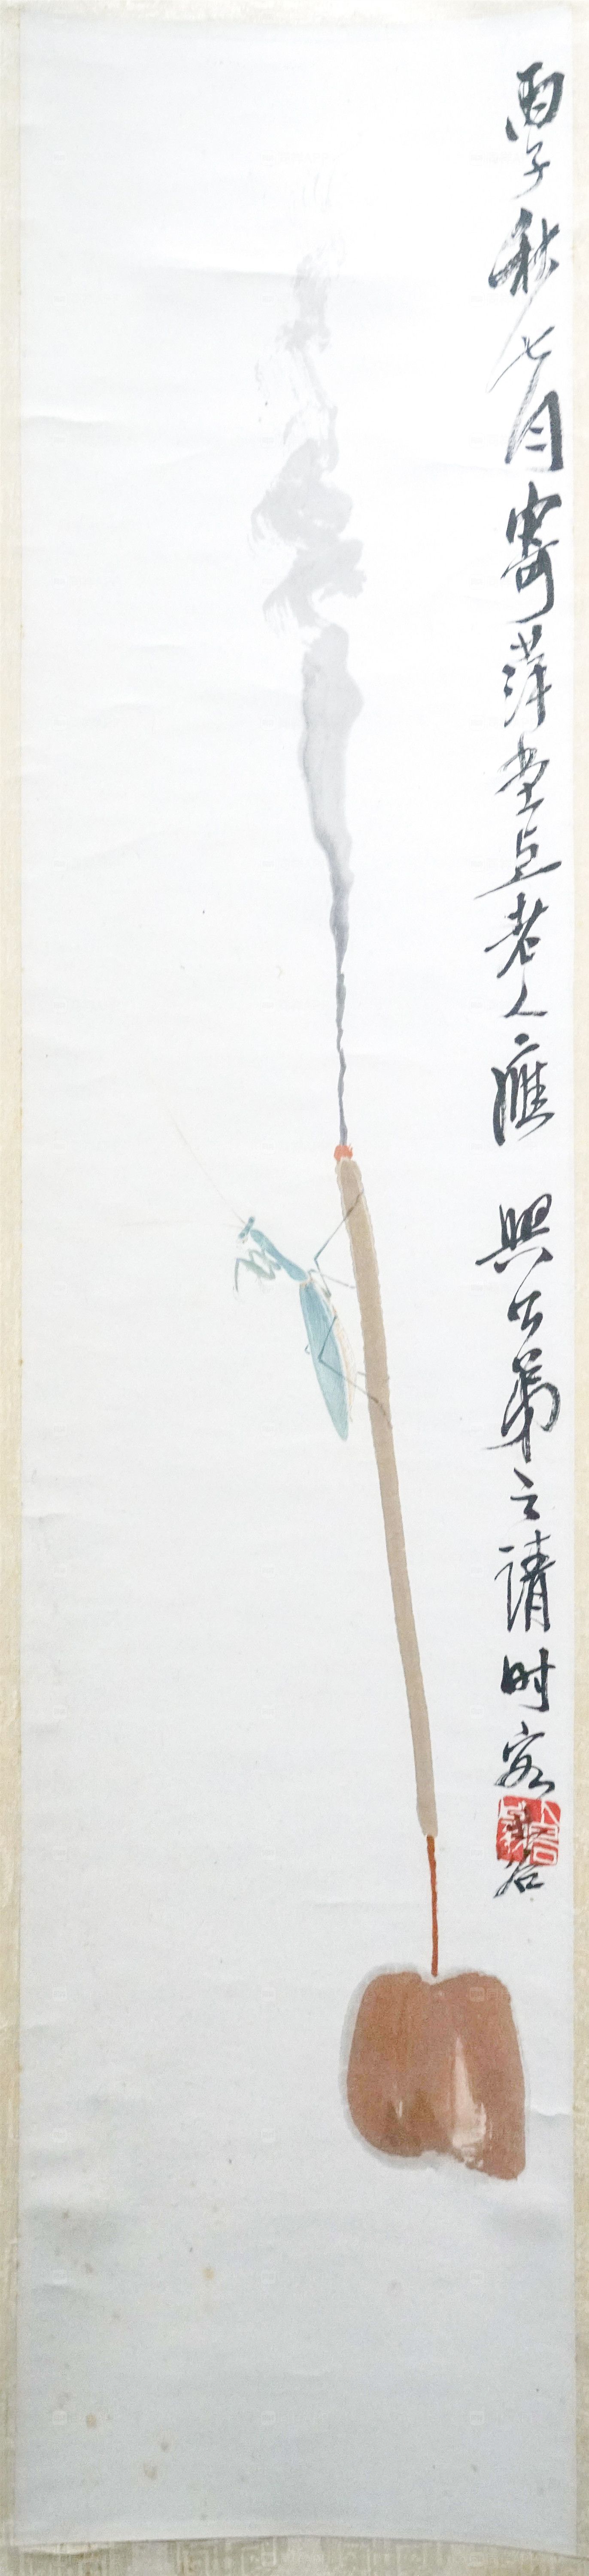 丙子秋七月寄萍堂上老人應 照公弟之請时客